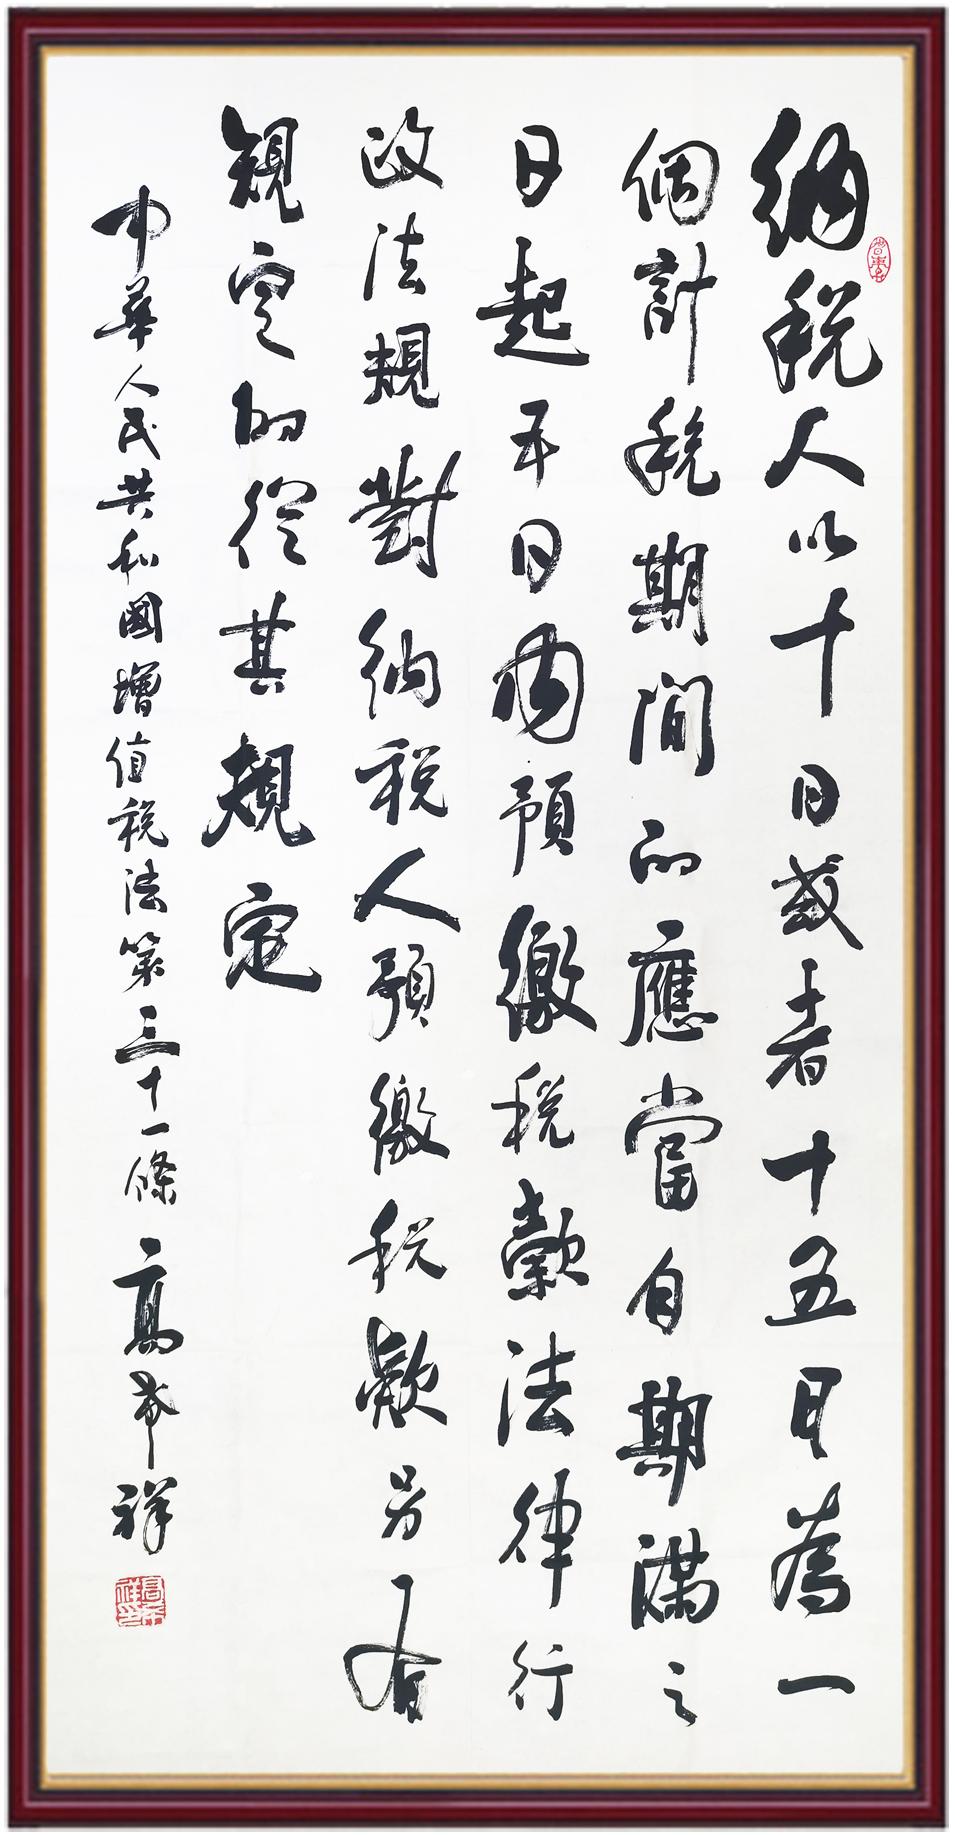 納税人以十日或者十五日為一
個計税期間的應當自期滿之
日起五日内預繳税款法律行
政法規對納税人預繳税款另有
規定的從其規定
中華人民共和國增值税法第三十一條 高希祥